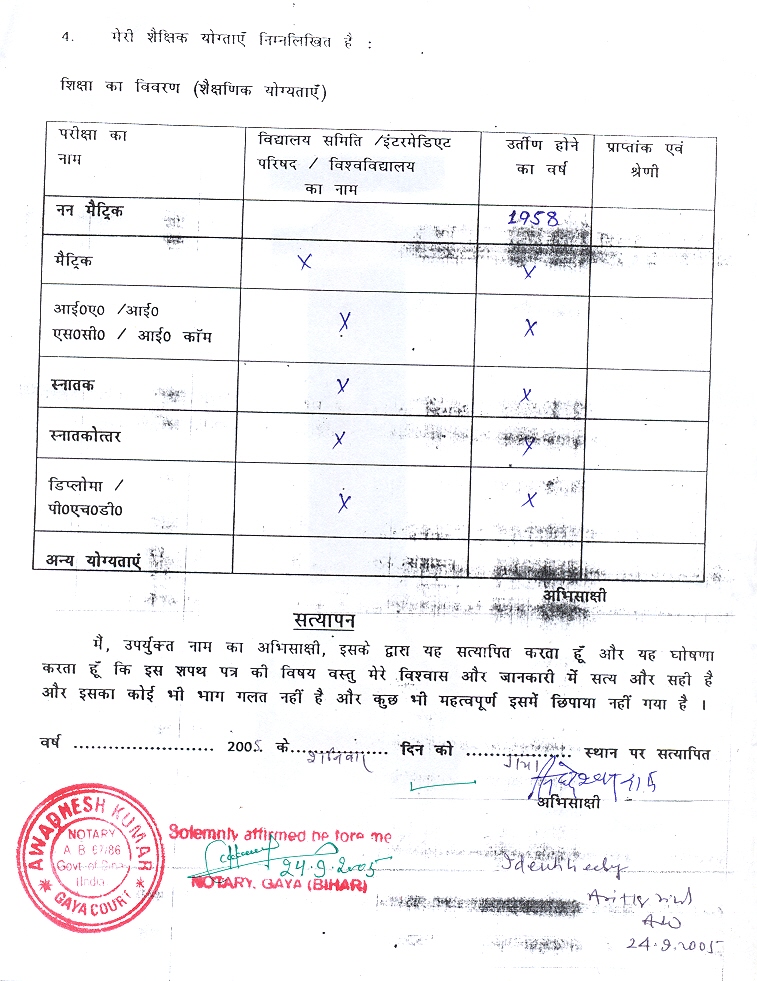 4. मेरी शैक्षिक योग्ताएँ निम्नलिखित है :
शिक्षा का विवरण (शैक्षणिक योग्यताएँ)
परीक्षा का नाम
विद्यालय समिति /इंटरमेडिएट परिषद / विश्वविद्यालय का नाम
उर्तीण होने का वर्ष
प्राप्तांक एवं श्रेणी
नन मैट्रिक 1958
मैट्रिक X X
आई0ए0 /आई0
एस0सी0 / आई0 कॉम X X
स्नातक X X
स्नातकोत्तर X X
डिप्लोमा /
पी0एच0डी0 X X
अन्य योग्यताएं
अभिसाक्षी
सत्यापन
मै, उपर्युक्त नाम का अभिसाक्षी, इसके द्वारा यह सत्यापित करता हूँ और यह घोषणा
करता हूँ कि इस शपथ पत्र की विषय वस्तु मेरे विश्वास और जानकारी में सत्य और सही है
और इसका कोई भी भाग गलत नहीं है और कुछ भी महत्वपूर्ण इसमें छिपाया नहीं गया है ।
वर्ष ........................ 2005 के.... शनिवार .... दिन को .... गया .... स्थान पर सत्यापित
अभिसाक्षी
AWADHESH KUMAR
NOTARY
A B 67/86
Govt-of
India
GAYA COURT
Solemnly affirmed before me
24.9.2005
NOTARY, GAYA (BIHAR)
24.9.2005